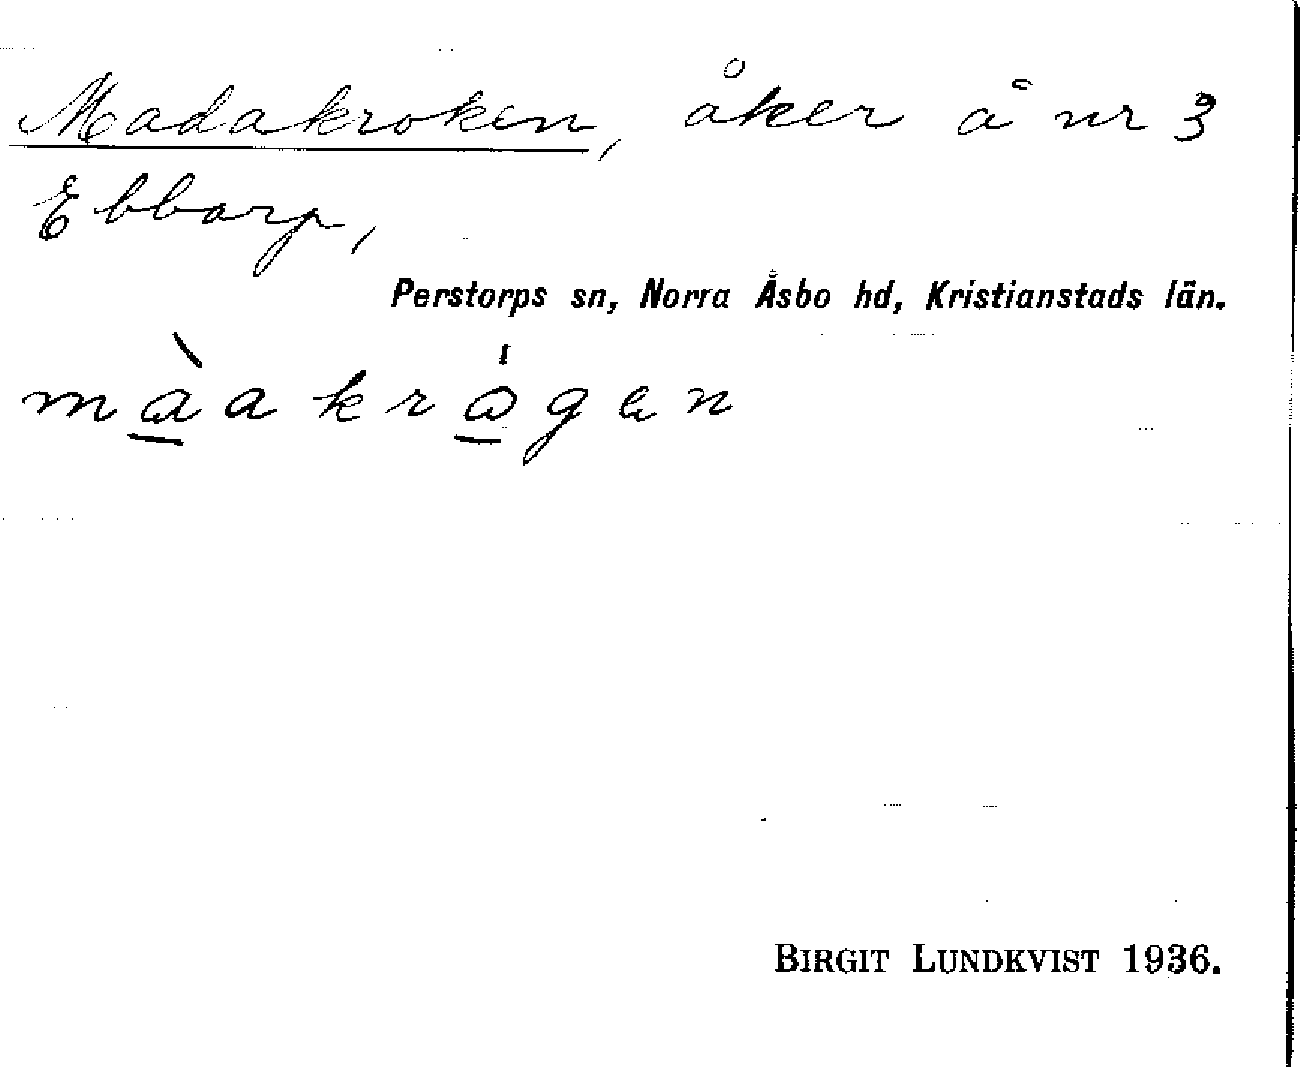 Madakroken, åker å nr 3
Ebbarp,
Perstorps sn, Norra Åsbo hd, Kristianstads län.
BIRGIT LUNDKVIST 1936.